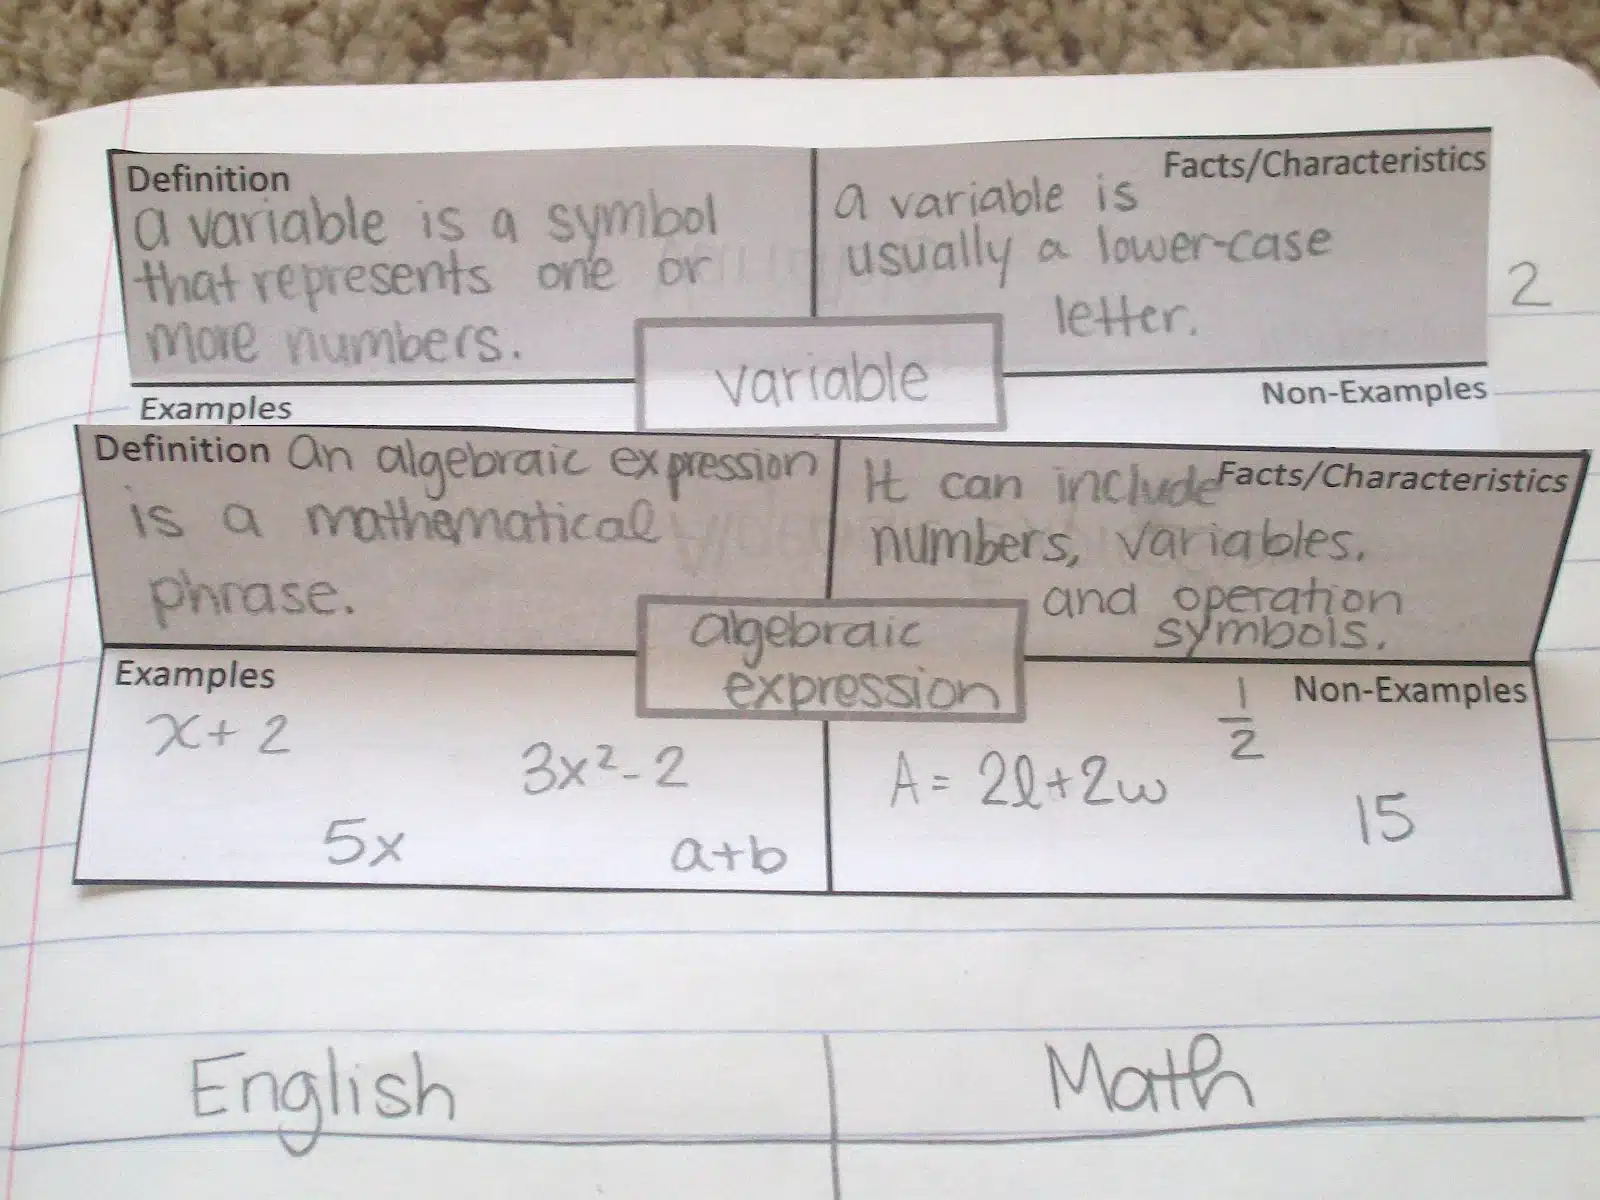 Definition
a variable is a symbol
that represents one or
more numbers.
Facts/Characteristics
a variable is
usually a lower-case
letter.
2
variable
Examples
Non-Examples
Definition An algebraic expression
is a mathematical
phrase.
Facts/Characteristics
It can include
numbers, variables,
and operation
symbols.
algebraic
expression
Examples
x + 2
3x² - 2
5x
a+b
Non-Examples
1/2
A = 2l + 2w
15
English
Math